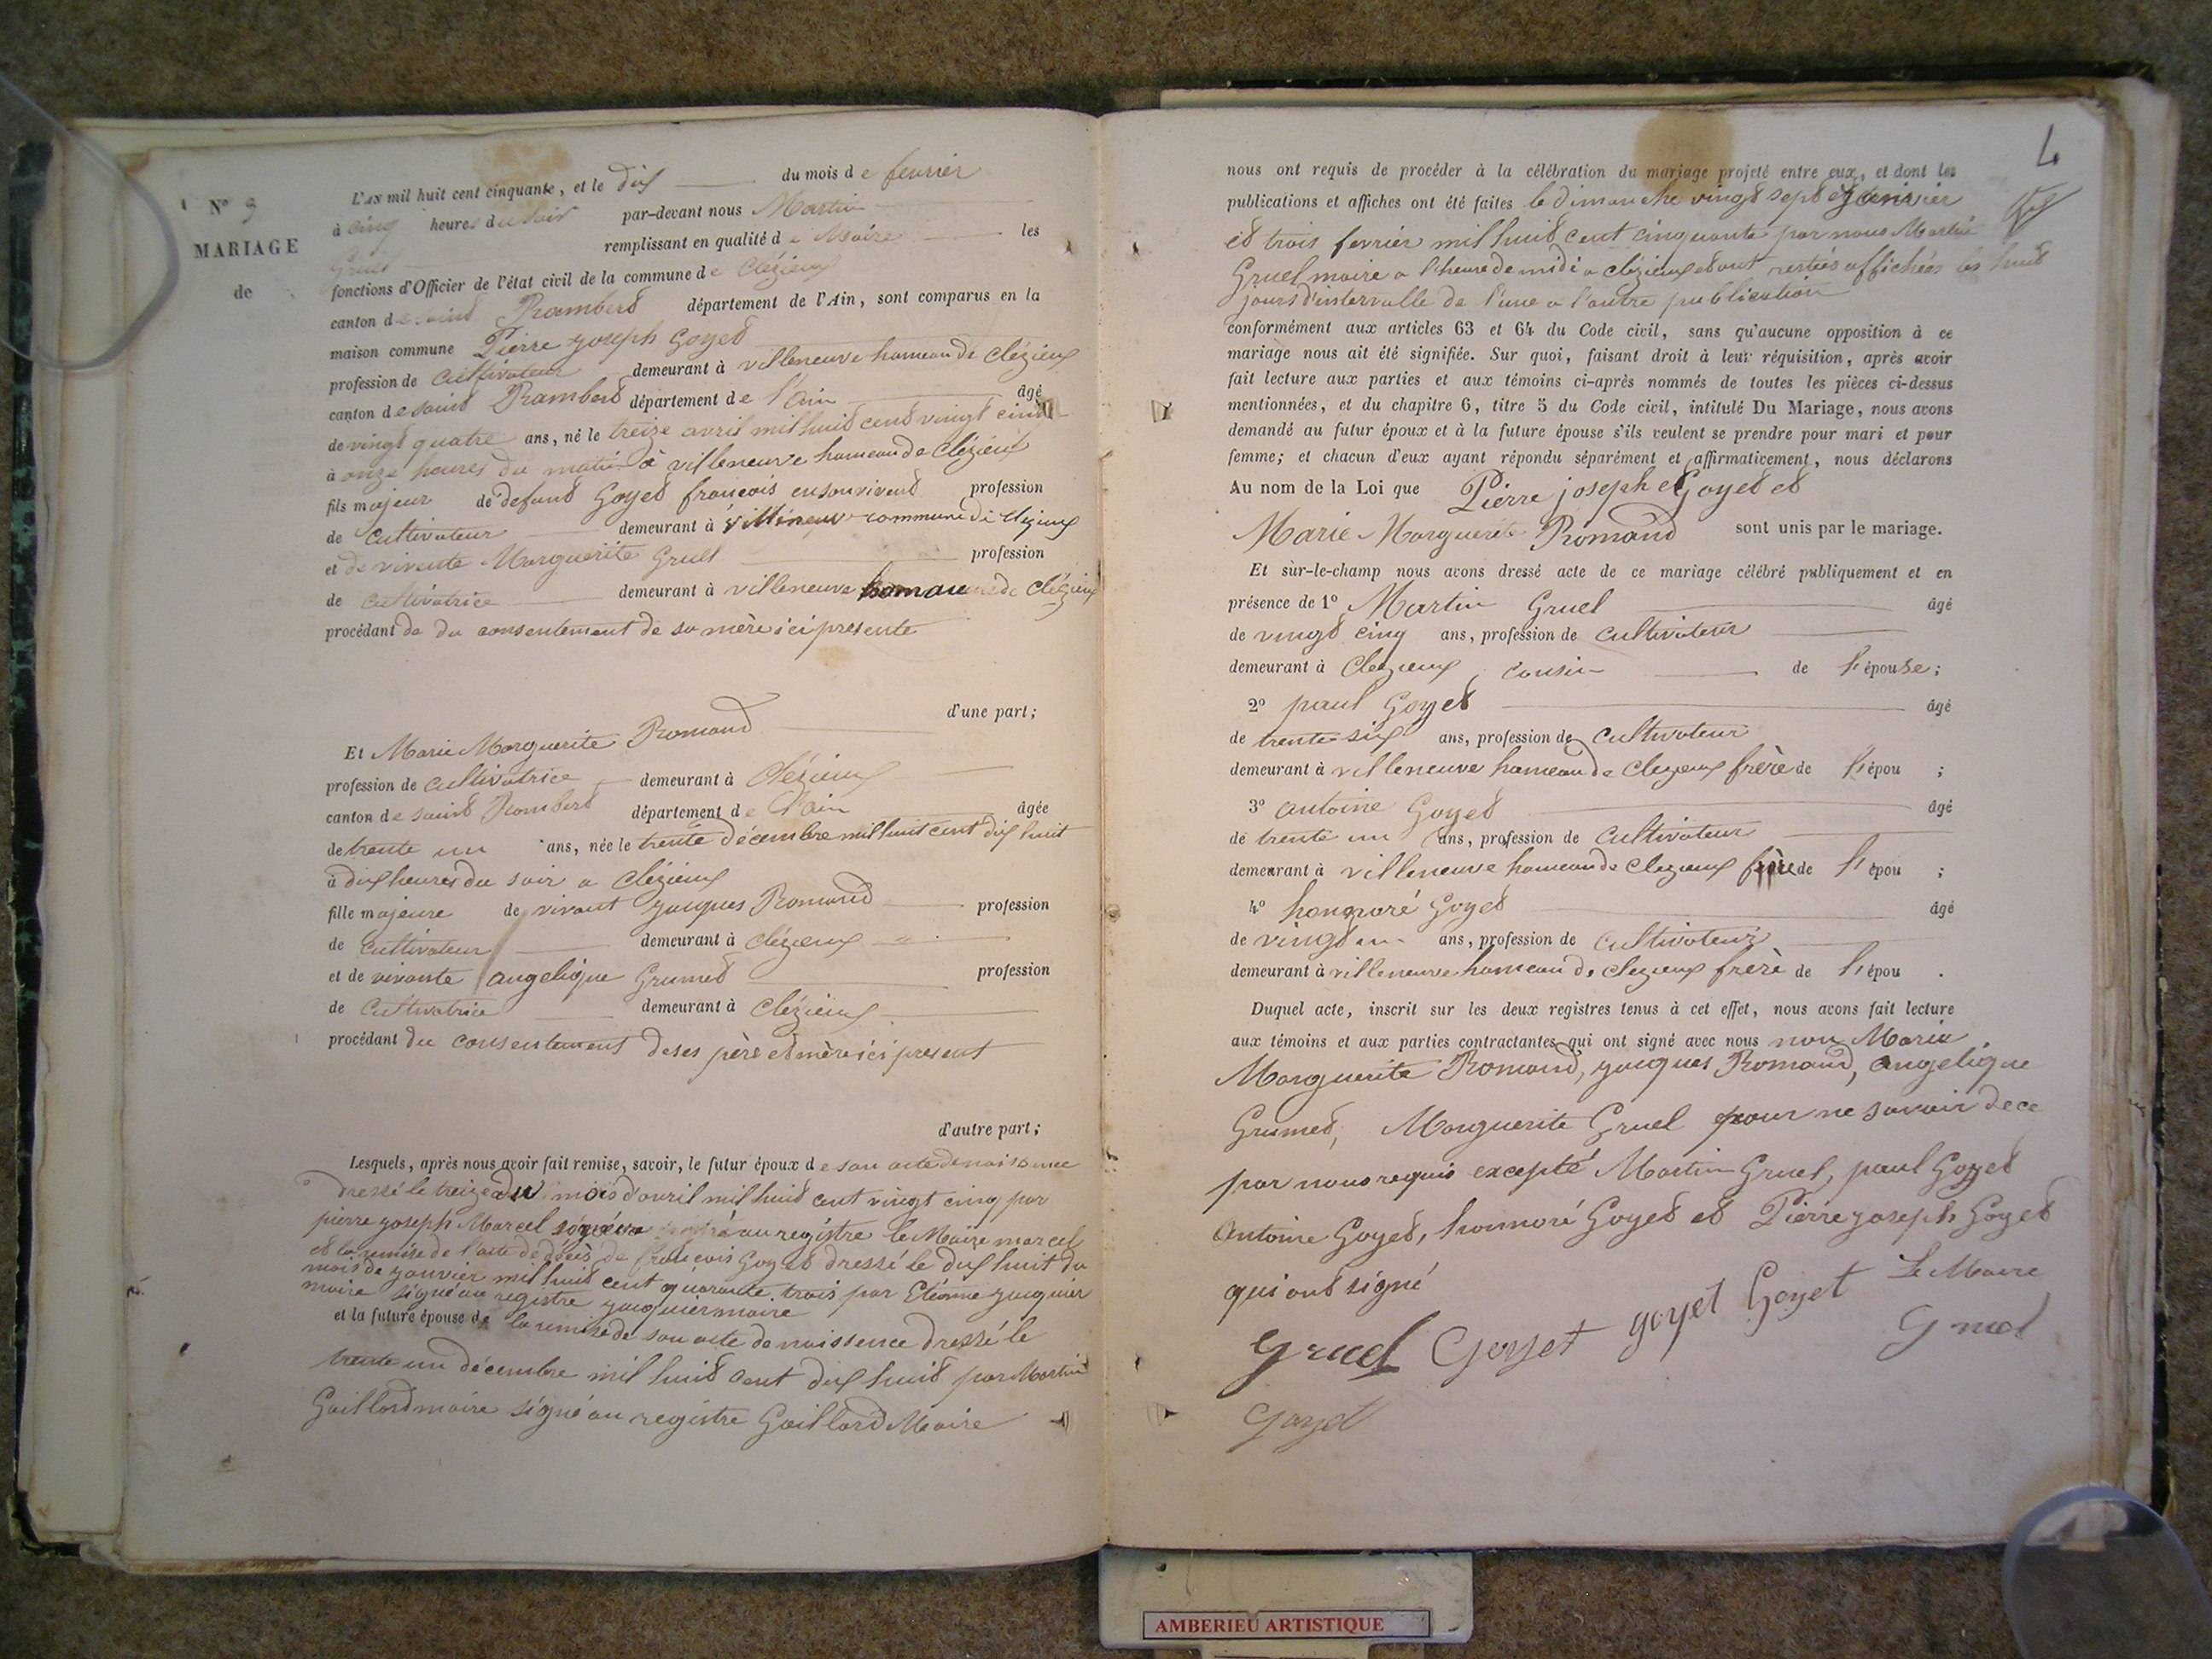 N° 9
MARIAGE
de
L'AN mil huit cent cinquante, et le dix du mois de fevrier
à cinq heures du soir par-devant nous Martin
Gruel remplissant en qualité de Maire les
fonctions d'Officier de l'état civil de la commune de Clézieux
canton de saint Rambert département de l'Ain, sont comparus en la
maison commune Pierre joseph Goyet
profession de cultivateur demeurant à villeneuve hameau de Clézieux
canton de saint Rambert département de l'Ain âgé
de vingt quatre ans, né le treize avril mil huit cent vingt cinq
à onze heures du matin à villeneuve hameau de Clézieux
fils majeur de defunt Goyet francois en son vivent profession
de cultivateur demeurant à villeneuv commune de clezieux
et de vivente Marguerite Gruel profession
de cultivatrice demeurant à villeneuve hamau de Clézieux
procédant de du consentement de sa mère ici presente
d'une part;
Et Marie Marguerite Romand
profession de cultivatrice demeurant à Clézieux
canton de saint Rambert département de l'ain âgée
de trente un ans, née le trente décembre mil huit cent dix huit
à dix heures du soir a Clézieux
fille majeure de vivant jacques Romand profession
de cultivateur demeurant à clézieux
et de vivante angelique Grumet profession
de cultivatrice demeurant à Clézieux
procédant du consentement de ses père et mère ici present
d'autre part;
Lesquels, après nous avoir fait remise, savoir, le futur époux de son acte de naissance
dressé le treize du mois d'avril mil huit cent vingt cinq par
pierre joseph Marcel au registre le Maire marcel
et la remise de l'acte de décès de francois Goyet dressé le dix huit du
mois de janvier mil huit cent quarante trois par Etienne juquier
maire signé au registre juquier maire
et la future épouse de la remise de son acte de naissence dressé le
trente un décembre mil huit cent dix huit par Martin
Gaillard maire signé au registre Gaillard Maire
4
nous ont requis de procéder à la célébration du mariage projeté entre eux, et dont les
publications et affiches ont été faites le dimanche vingt sept janvier
et trois fevrier mil huit cent cinquante par nous Martin
Gruel maire a l'heure de midi a clézieux et ont restées affichées les huit
jours d'intervalle de l'une a l'autre publication
conformément aux articles 63 et 64 du Code civil, sans qu'aucune opposition à ce
mariage nous ait été signifiée. Sur quoi, faisant droit à leur réquisition, après avoir
fait lecture aux parties et aux témoins ci-après nommés de toutes les pièces ci-dessus
mentionnées, et du chapitre 6, titre 5 du Code civil, intitulé Du Mariage, nous avons
demandé au futur époux et à la future épouse s'ils veulent se prendre pour mari et pour
femme; et chacun d'eux ayant répondu séparément et affirmativement, nous déclarons
Au nom de la Loi que Pierre joseph Goyet et
Marie Marguerite Romand sont unis par le mariage.
Et sur-le-champ nous avons dressé acte de ce mariage célébré publiquement et en
présence de 1° Martin Gruel âgé
de vingt cinq ans, profession de cultivateur
demeurant à Clezieux cousin de l'épouse;
2° paul Goyet âgé
de trente six ans, profession de cultivateur
demeurant à villeneuve hameau de Clezieux frère de l'épou ;
3° antoine Goyet âgé
de trente un ans, profession de cultivateur
demeurant à villeneuve hameau de Clezieux frère de l'épou ;
4° honnoré Goyet âgé
de vingt un ans, profession de cultivateur
demeurant à villeneuve hameau de clezieux frère de l'épou .
Duquel acte, inscrit sur les deux registres tenus à cet effet, nous avons fait lecture
aux témoins et aux parties contractantes qui ont signé avec nous non Marie
Marguerite Romand, jacques Romand, angelique
Grumet, Marguerite Gruel pour ne savoir de ce
par nous requis excepté Martin Gruel, paul Goyet
antoine Goyet, honnoré Goyet et Pierre joseph Goyet
qui ont signé
Gruel Goyet goyet Goyet Le Maire
Gruel
Goyet
AMBERIEU ARTISTIQUE